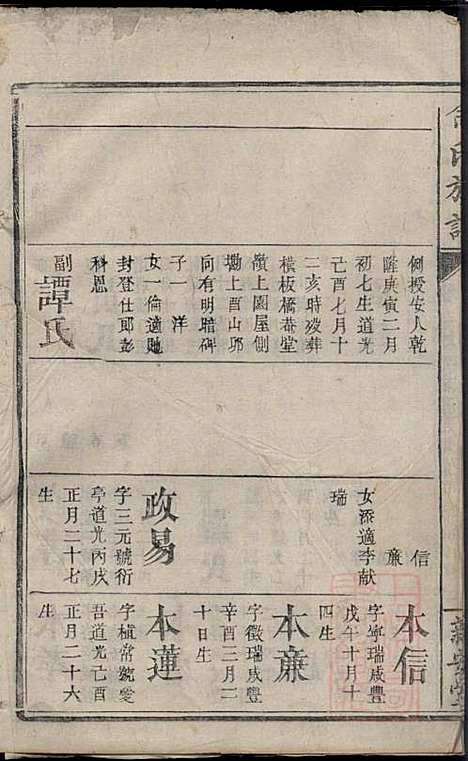 例授安人乾
隆庚寅二月
初七生道光
己酉七月十
二亥時歿葬
橫板橋菴堂
嶺上園屋側
坳上酉山邜
向有明瞻碑
子一 洋
女一倫適貤
封登仕郎彭
科恩
副譚氏
信
亷
女添適李献
瑞
政易
字三元號衍
亭道光丙戌
正月二十七
生
本信
字寧瑞咸豐
戊午十月十
四生
本亷
字徵瑞咸豐
辛酉三月二
十日生
本蓮
字楨常號愛
吾道光己酉
正月二十六
生